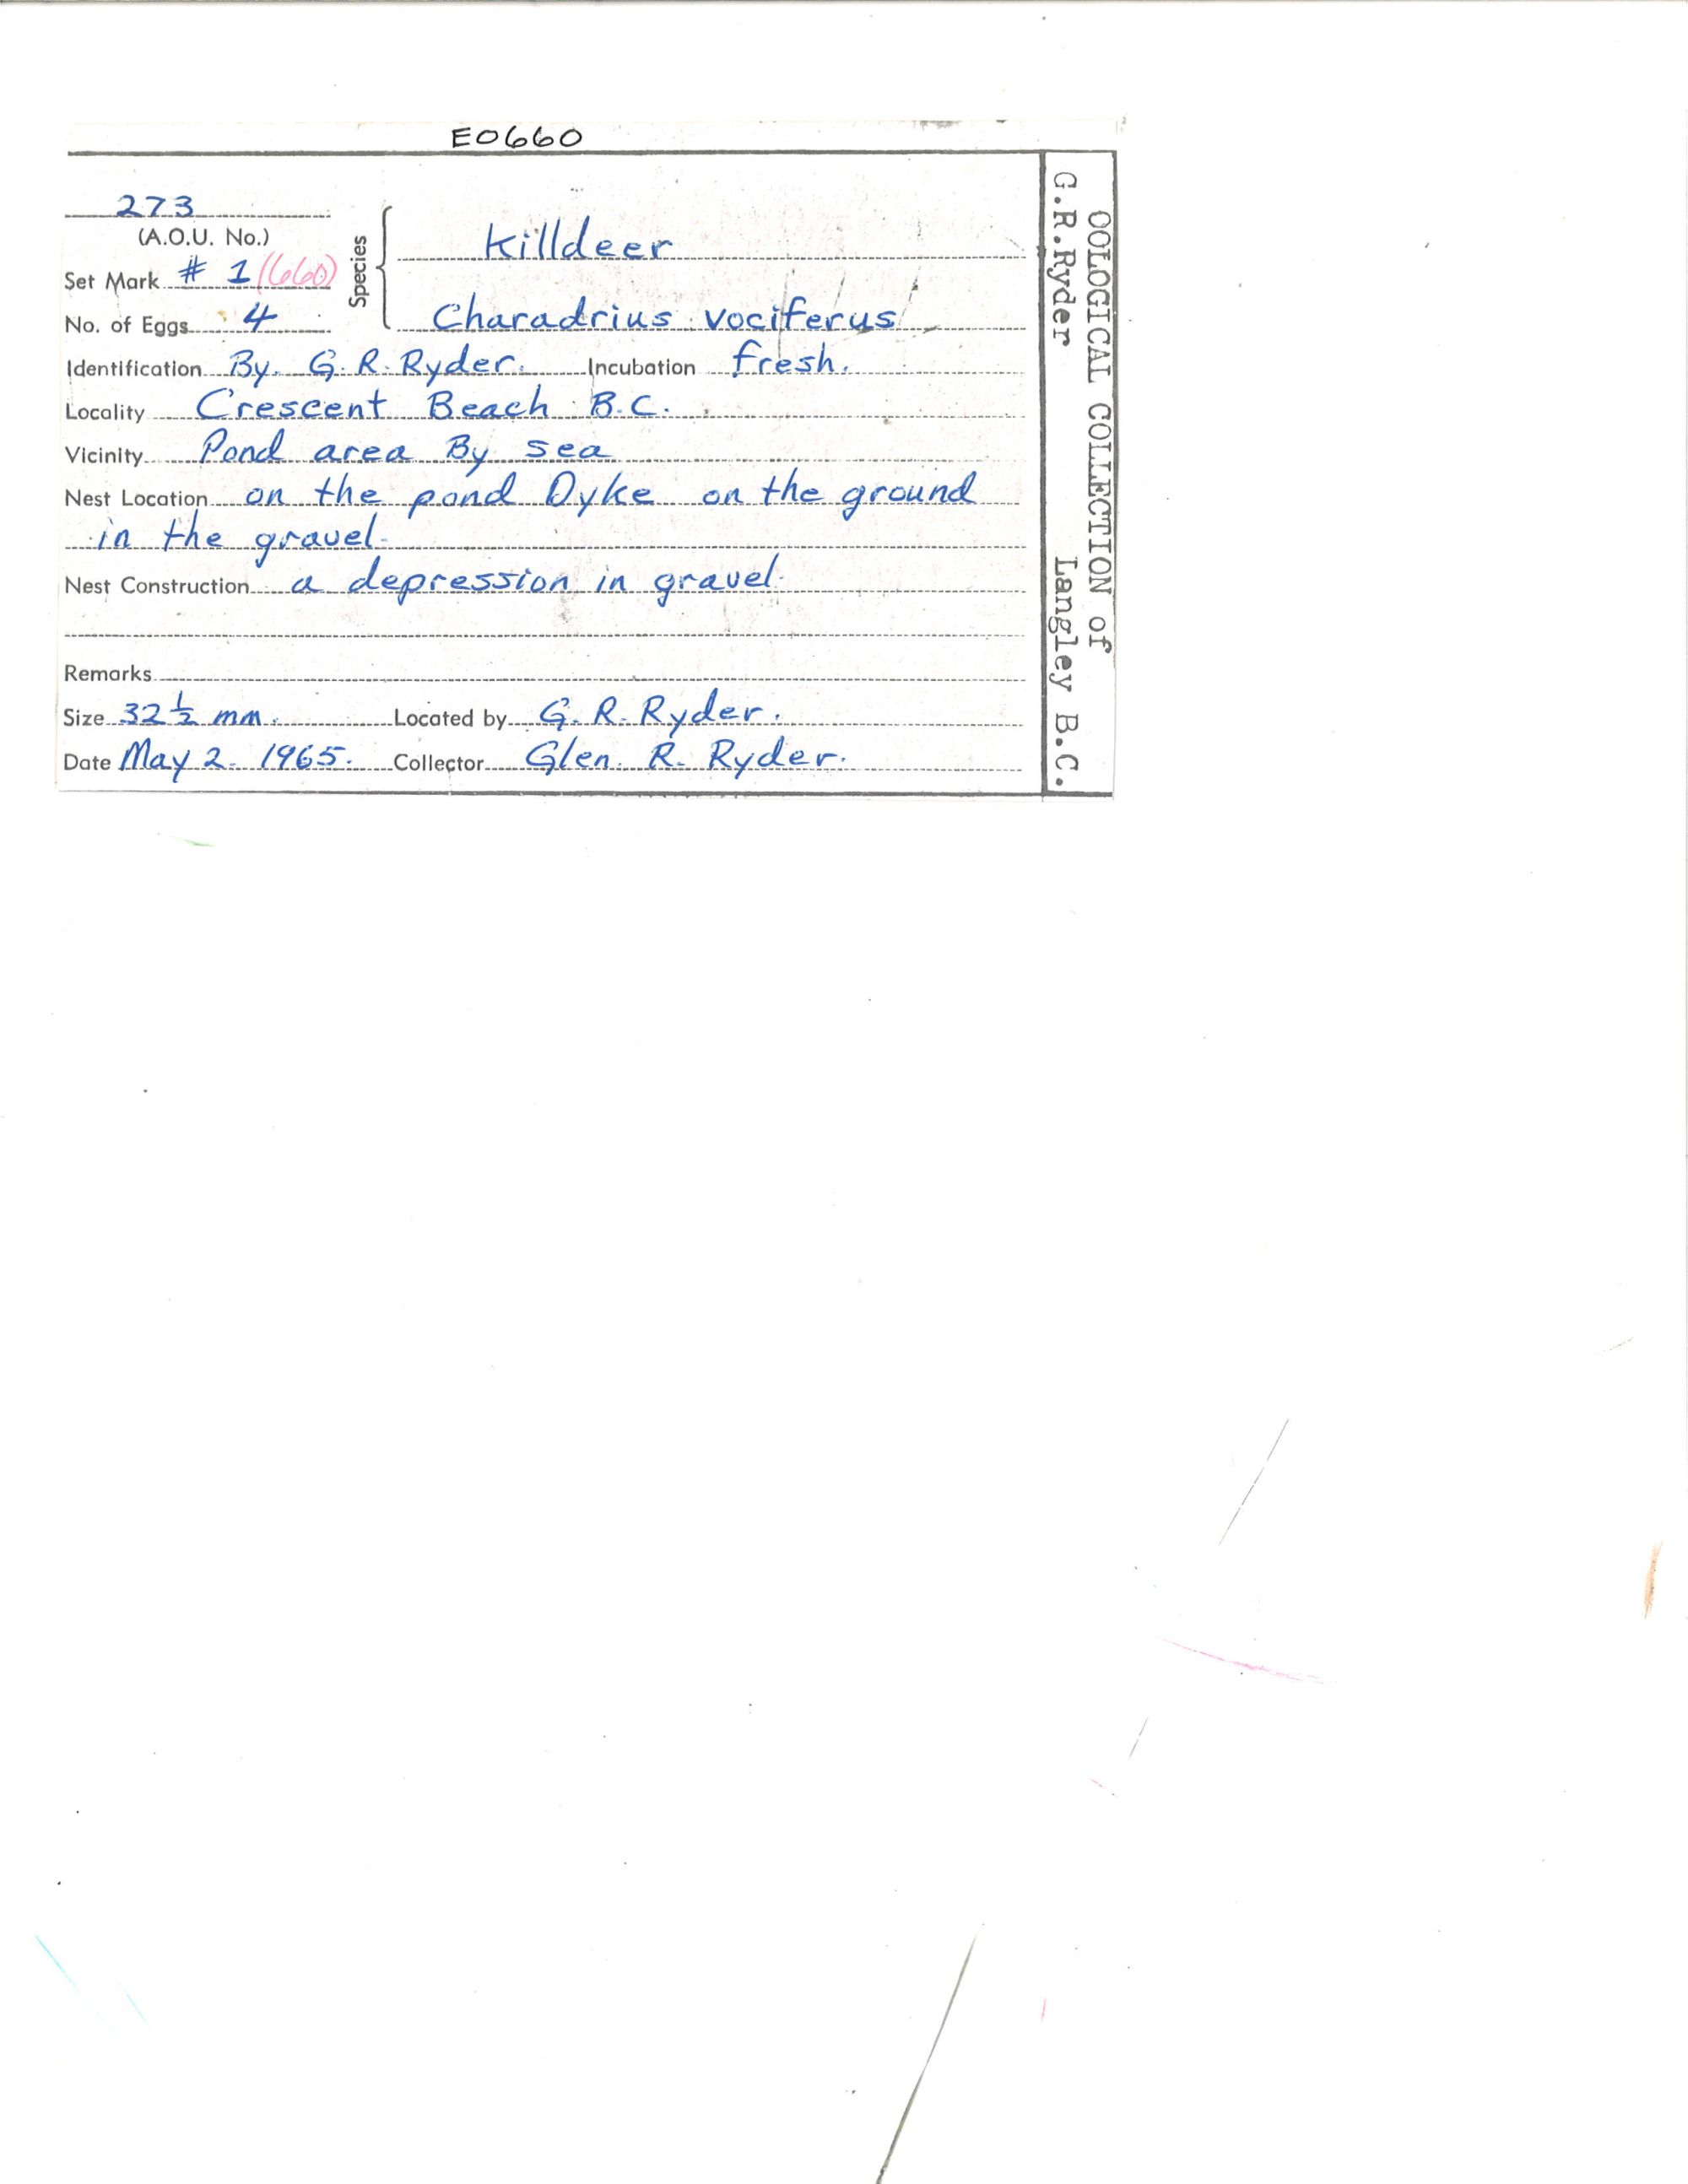 E0660
273
(A.O.U. No.)
Set Mark # 1 (660)
No. of Eggs 4
Species
Killdeer
Charadrius vociferus
Identification By. G. R. Ryder. Incubation fresh.
Locality Crescent Beach B.C.
Vicinity Pond area By sea
Nest Location on the pond Dyke on the ground
in the gravel.
Nest Construction a depression in gravel.
Remarks
Size 32 1/2 mm. Located by G. R. Ryder.
Date May 2. 1965. Collector Glen. R. Ryder.
OOLOGICAL COLLECTION of
G.R.Ryder Langley B.C.